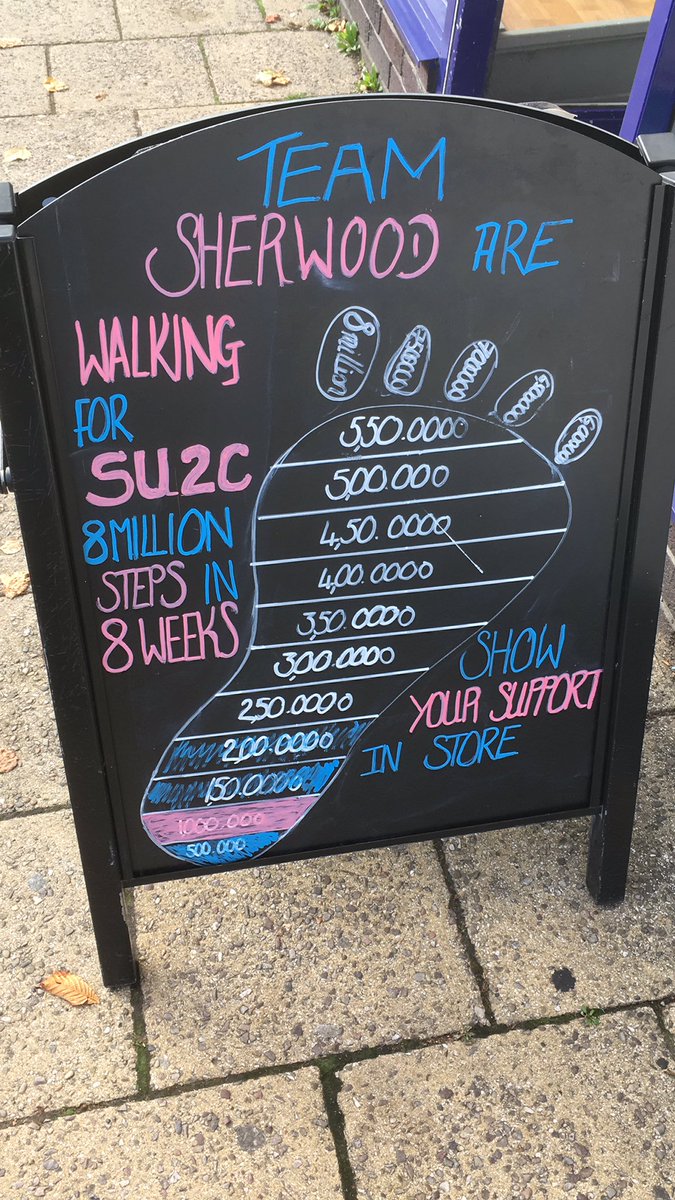 TEAM
SHERWOOD ARE
WALKING
FOR
SU2C
8 MILLION
STEPS IN
8 WEEKS
8 million
5,50.0000
5,00.000
4,50.0000
4,00.0000
3,50.0000
3,00.0000
2,50.0000
2,00.0000
1,50.0000
1000.000
500.000
SHOW
YOUR SUPPORT
IN STORE